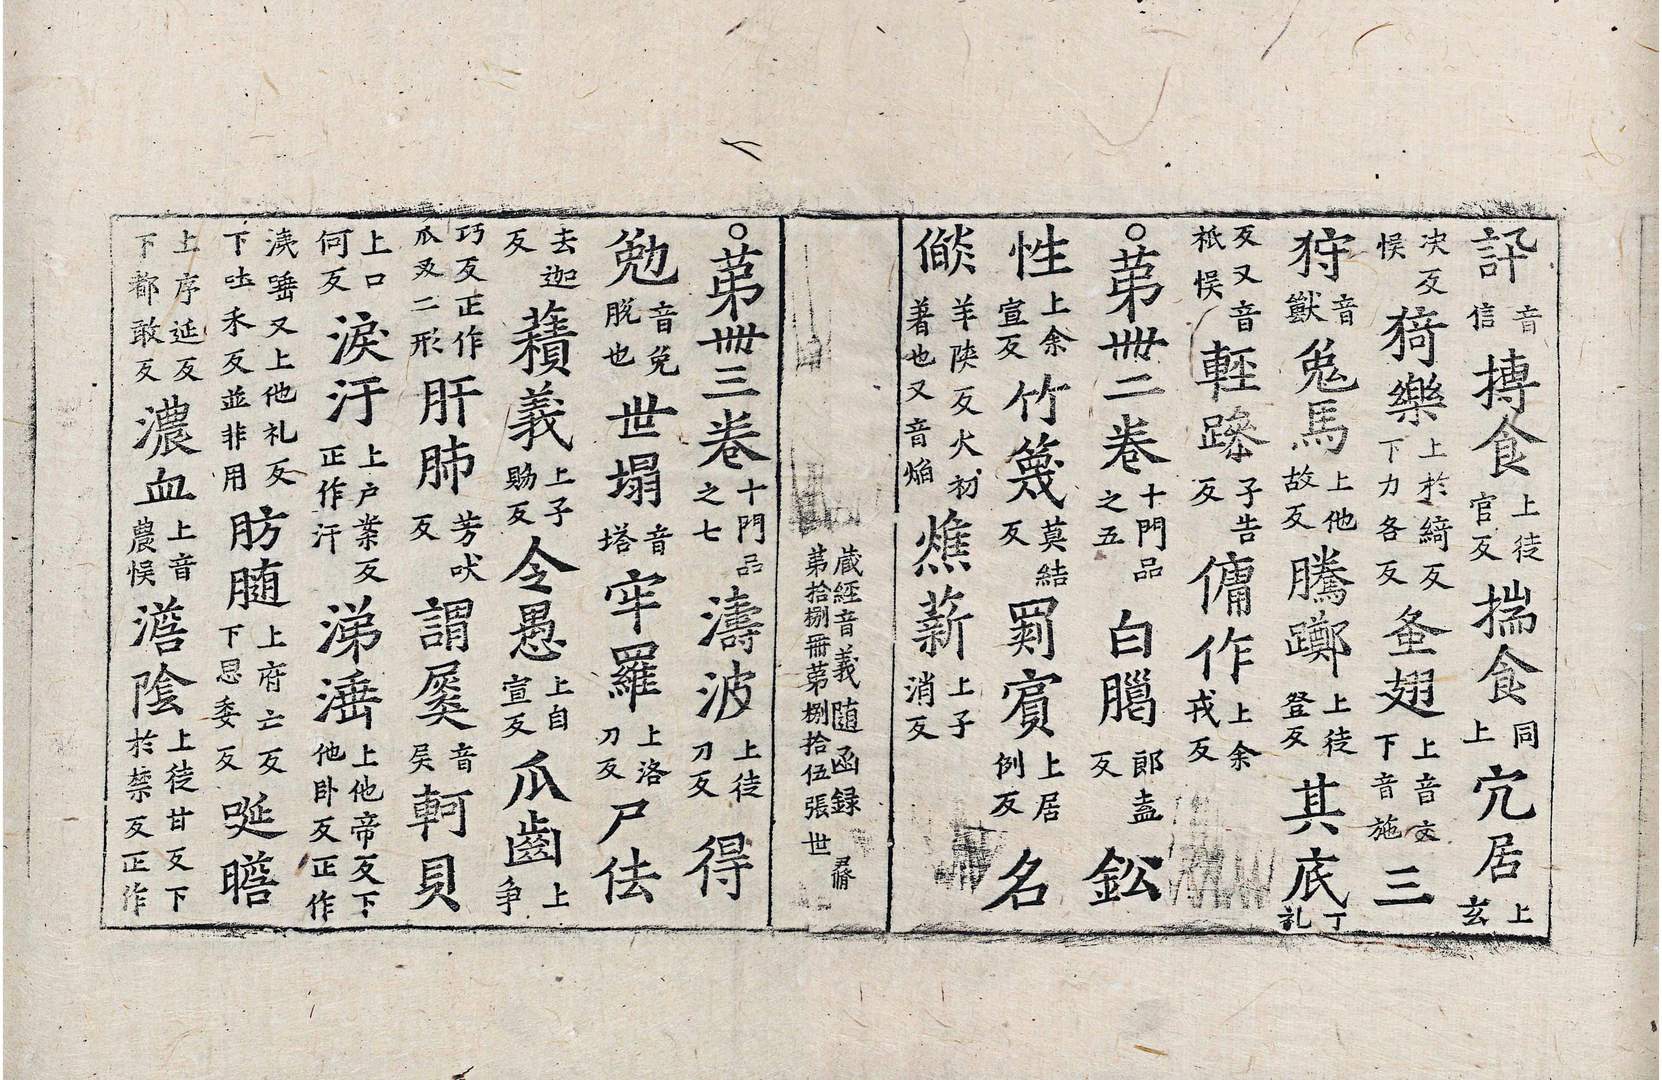 訙音信摶食上徒官反揣食同上宂居上玄
决反悮猗樂上扵綺反下力各反蚤翅上音文下音施三
狩音獸兔馬上他故反騰躑上徒登反其底丁礼
反又音祇悮輊𨄔子告反傭作上余戎反
○苐丗二卷十門品之五白臈郎盍反鈆
性上余宣反竹篾莫結反罽賔上居例反名
倓羊陜反反火初著也又音焔燋薪上子消反
蔵經音義随函録苐拾捌冊苐捌拾伍張世
○苐丗三卷十門品之七濤波上徒刀反得
勉音免脱也世塌音塔牢羅上洛刀反尸佉
去迦反蕷義上子賜反令愚上自宣反爪齒上争
巧反正作爪叉二形肝肺芳吠反謂㞞音吴軻貝
上口何反淚汙上户䒱反正作汗涕涶上他帝反下他卧反正作
洟唾又上他礼反下吐禾反並非用肪䐉上府亡反下思委反唌曕
上序延反下都敢反濃血上音農悮澹陰上徒甘反下扵禁反正作